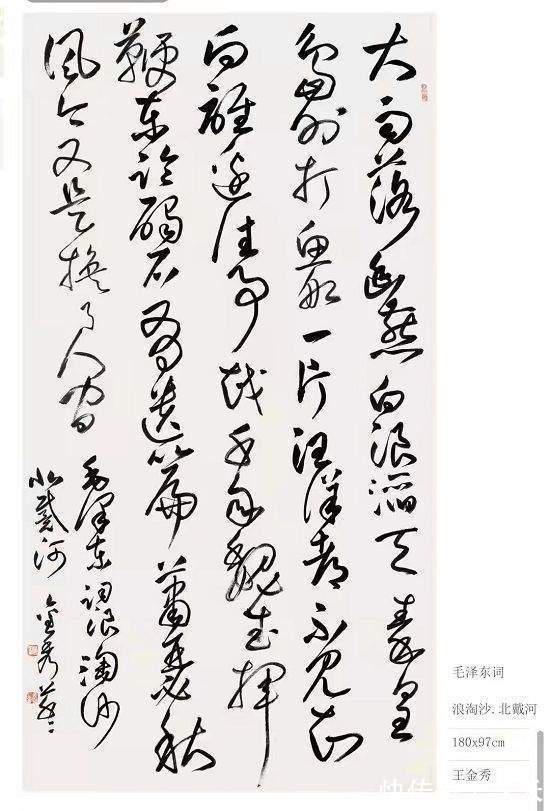 大雨落幽燕白浪滔天秦皇
岛外打鱼船一片汪洋都不见知
向谁边往事越千年魏武挥
鞭东临碣石有遗篇萧瑟秋
风今又是换了人间
毛泽东词浪淘沙
北戴河 金秀书
毛泽东词
浪淘沙.北戴河
180x97cm
王金秀